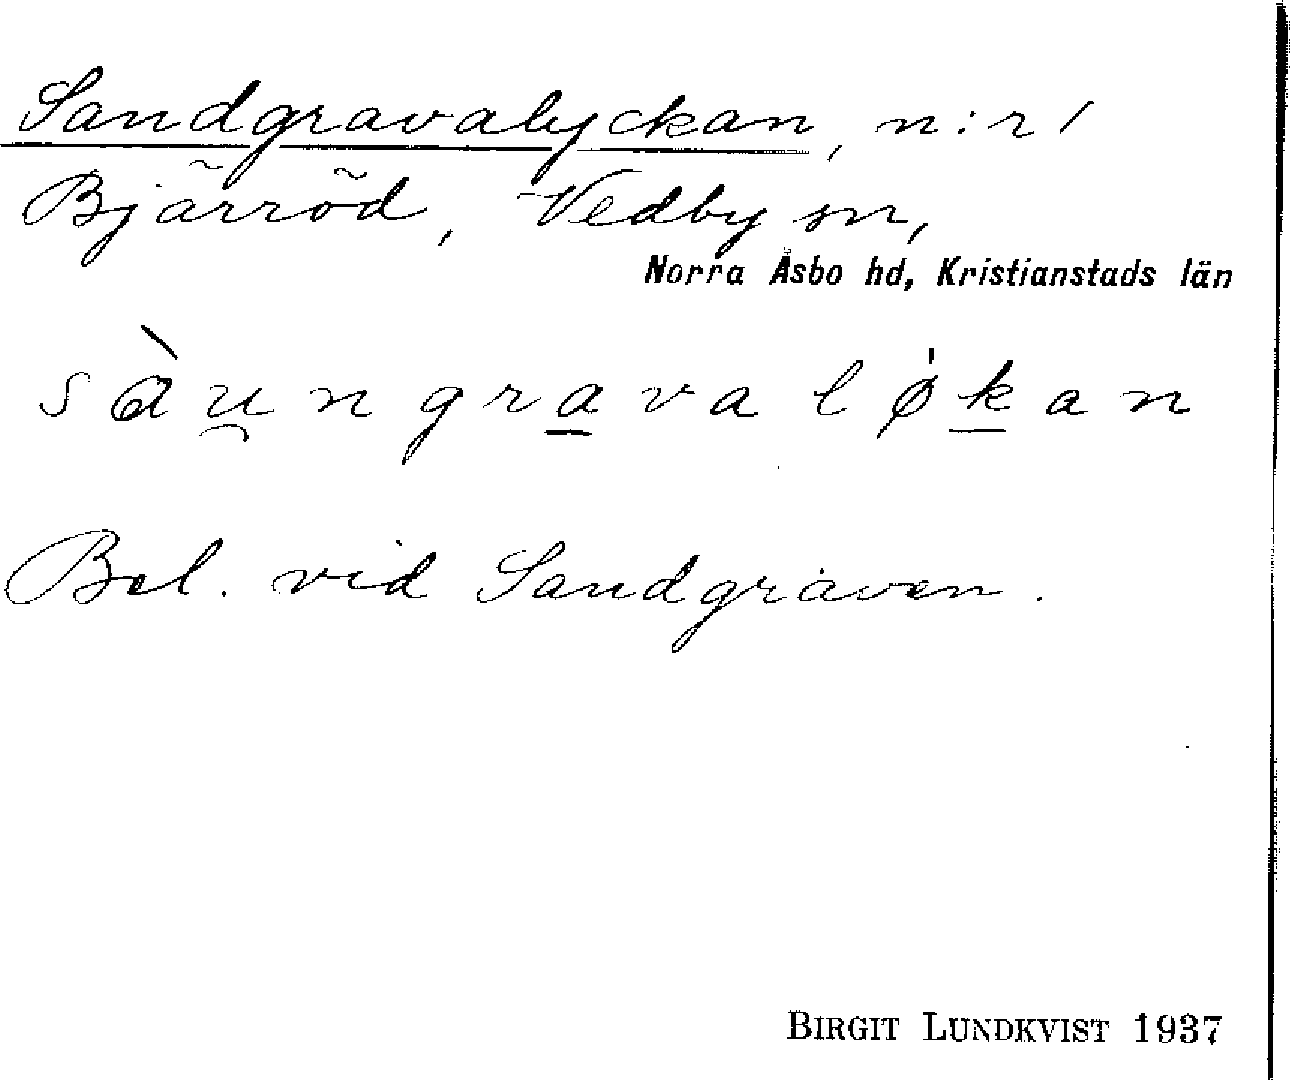 Sandgravalyckan, n:r 1
Bjärröd, Vedby sn,
Norra Åsbo hd, Kristianstads län
sὰu̯ngra̲valø̍k̲an
Bel. vid Sandgraven.
BIRGIT LUNDKVIST 1937